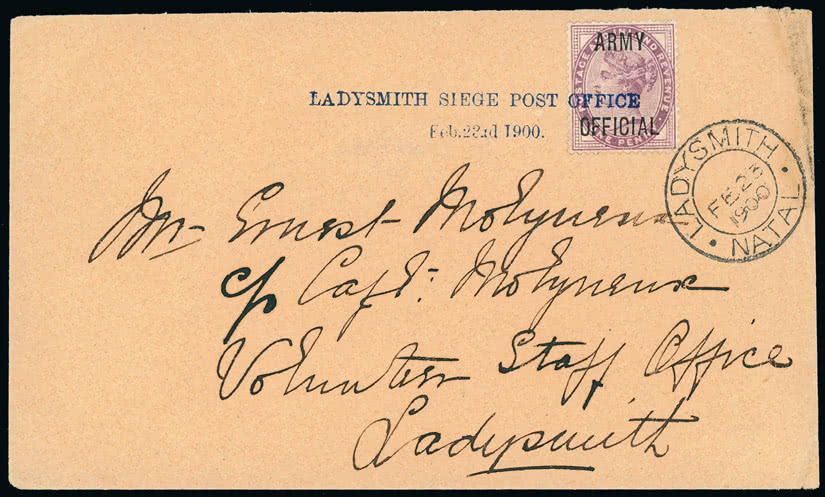 ARMY
OFFICIAL
POSTAGE AND REVENUE
ONE PENNY
LADYSMITH SIEGE POST OFFICE
Feb. 23rd 1900.
LADYSMITH
FE 23
1900
NATAL
Mr Ernest Molyneux
c/o Capt: Molyneux
Volunteer Staff Office
Ladysmith